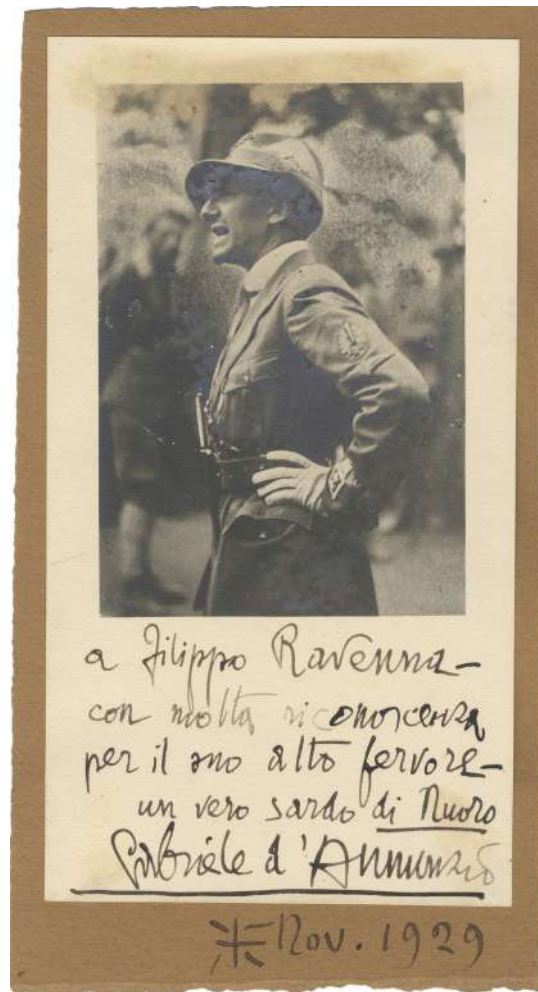 a Filippo Ravenna—
con molta riconoscenza
per il suo alto fervore—
un vero sardo di Nuoro
Gabriele d'Annunzio
Nov. 1929